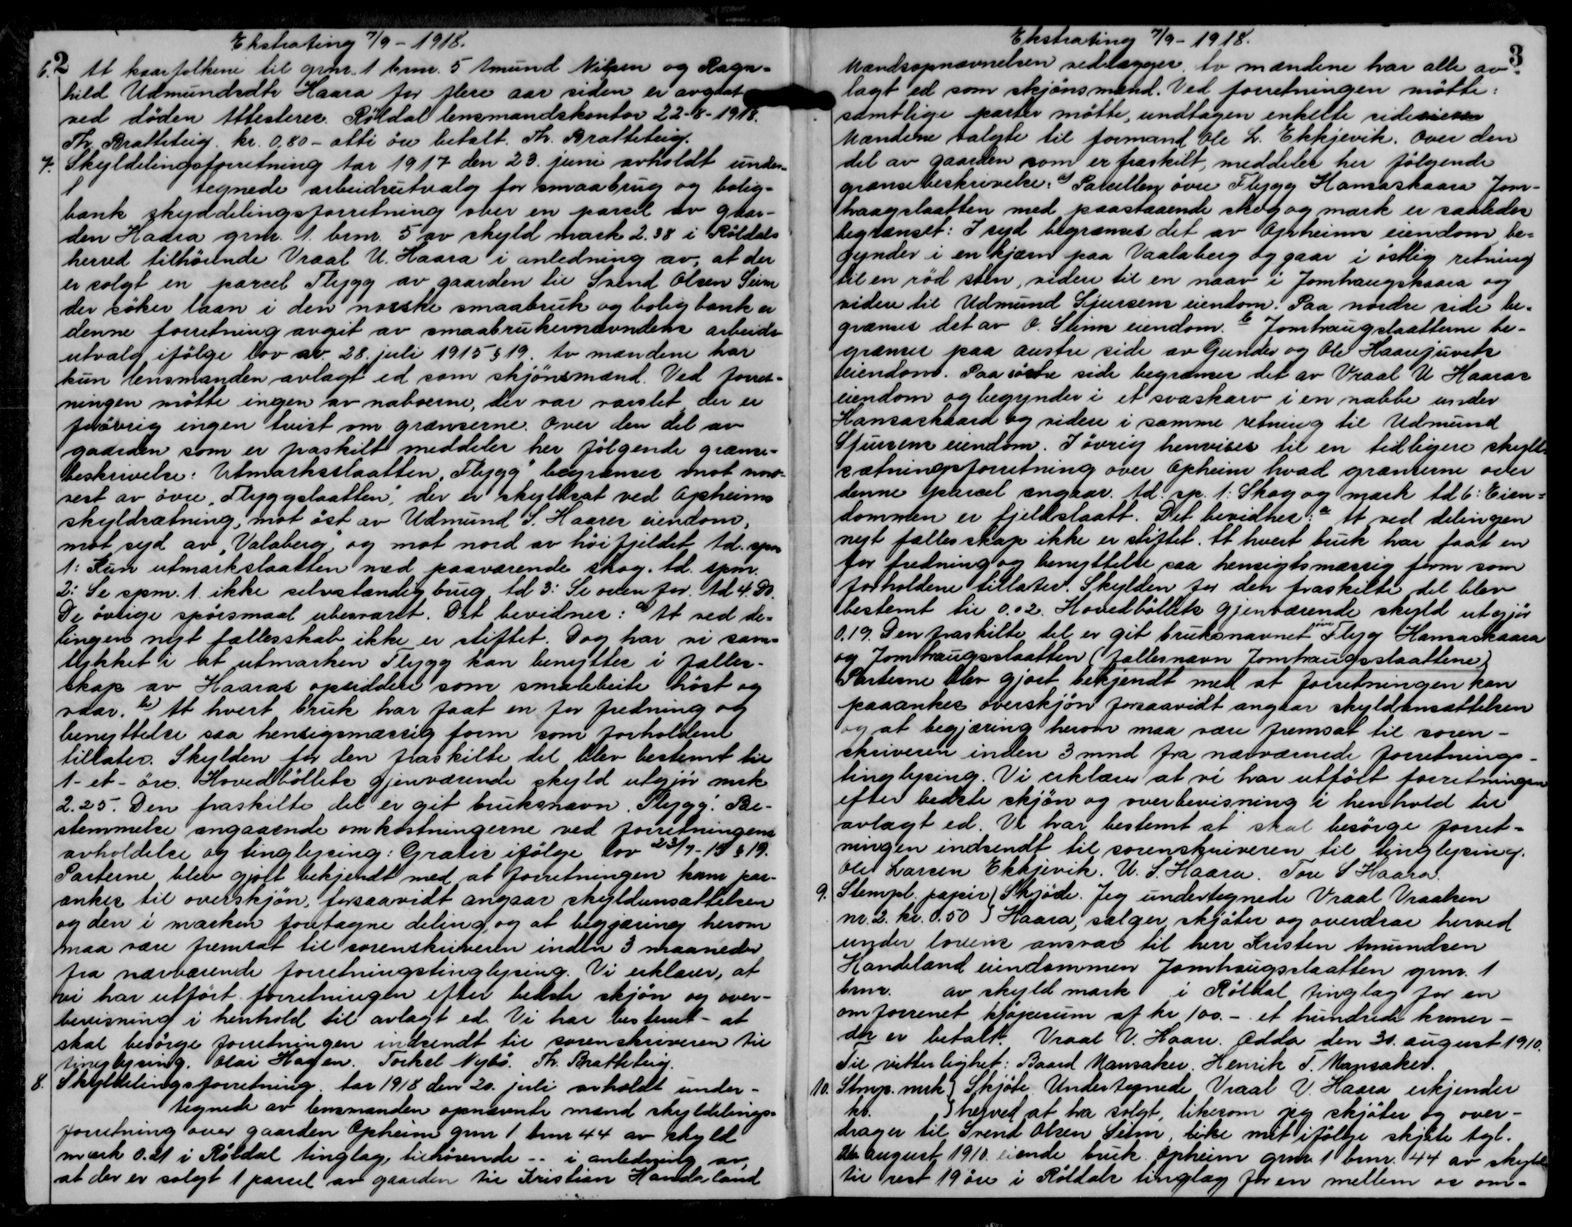 Ekstrating 7/9 - 1918.
2
6. At kaarfolkene til grnr. 1 brnr. 5 Amund Nilsen og Ragn-
hild Udmundsdtr Haara for flere aar siden er avgaat
ved döden attesteres. Röldal lensmandskontor 22-8-1918.
Th. Bratteteig. kr. 0,80 - otti öre betalt. Th. Bratteteig.
7. Skyldelingsforretning. Aar 1917 den 23. juni avholdt under-
tegnede arbeidsutvalg for smaabrug og bolig-
bank skyddelingsforretning over en parcel av gaar-
den Haara grnr. 1. brnr. 5 av skyld mark 2.38 i Röldals
herred tilhörende Vraal U. Haara i anledning av, at der
er solgt en parcel Flygg av gaarden til Svend Olsen Seim
der söker laan i den norske smaabruk og bolig bank er
denne forretning avgit av smaabrukernævndens arbeids-
utvalg ifölge lov av 28. juli 1915 § 19. Av mændene har
kun lensmanden avlagt ed som skjönsmænd. Ved forret-
ningen mötte ingen av naboerne, der var varslet, der er
forövrig ingen tvist om grænserne. Over den del av
gaarden som er fraskilt meddeles her fölgende grænse-
beskrivelse: Utmarksslaatten "Flygg" begrænses mot nord-
vest av övre "Flyggslaatten", der er skyldsat ved Opheims
skyldsætning, mot öst av Udmund S. Haares eiendom,
mot syd av "Valaberg" og mot nord av höifjeldet. Ad. spm
1: Kun utmarkslaatten med paaværende skog. Ad. spm.
2: Se spm. 1. ikke selvstændig brug, Ad 3: Se ovenfor. Ad 4. Do.
De övrige spörsmaal ubesvaret. Det bevidnes: a) At ved de-
lingen nyt fællesskab ikke er stiftet. Dog har vi sam-
tykket i at utmarken Flygg kan benyttes i fælles-
skap av Haaras opsiddere som smalebeite höst og
vaar. b) At hvert bruk har faat en for fredning og
benyttelse saa hensigsmæssig form som forholdene
tillater. Skylden for den fraskilte del blev bestemt til
1 - et - öre. Hovedböllets gjenværende skyld utgjör mrk
2.25. Den fraskilte del er git bruksnavn "Flygg". Be-
stemmelse angaaende omkostningerne ved forretningens
avholdelse og tinglysing: Gratis ifölge lov 23/7-15 § 19.
Parterne blev gjort bekjendt med, at forretningen kann paa-
ankes til overskjön, forsaavidt angaar skyldansættelsen
og den i marken foretagne deling, og at begjæring herom
maa være fremsat til sorenskriveren inden 3 maaneder
fra nærværende forretningstinglysing. Vi erklærer, at
vi har utfört forretningen efter bedste skjön og over-
bevisning i henhold til avlagt ed. Vi har bestemt - at
skal besörge forretningen indsendt til sorenskriveren til
tinglysing. Olai Hagen. Torkel Nybö. Th. Bratteteig.
8. Skyldelingsforretning. Aar 1918 den 20. juli avholdt under-
tegnede av lensmanden opnævnte mænd skyldelings-
forretning over gaarden Opheim grnr 1 brnr 44 av skyld
mark 0.21 i Röldal tinglag, tilhörende -- i anledning av,
at der er solgt 1 parcel av gaarden til Kristian Handeland
Ekstrating 7/9 - 1918.
3
Mændsopnævnelsen vedlægges. Av mændene har alle av-
lagt ed som skjönsmænd. Ved forretningen mötte:
samtlige parter mötte, undtagen enkelte
Mændene valgte til formand Ole L. Ekkjevik. Over den
del av gaarden som er fraskilt, meddeles her fölgende
grænsebeskrivelse: a) Parcellen övre Flygg Hansaskaara Jom-
haugslaatten med paastaaende skog og mark er saaledes
begrænset: I syd begrænses det av Opheims eiendom, be-
gynder i en kjærn paa Vaalaberg og gaar i östlig retning
til en röd sten, videre til en naav i Jomhaugskaara og
videre til Udmund Sjursens eiendom. Paa nordre side be-
grænses det av O. Seims eiendom. b) Jomhaugslaatterne be-
grænses paa austre side av Gundes og Ole Haarejuvets
eiendom. Paa söstre side begrænses det av Vraal U Haaras
eiendom og begynder i et svaskarv i en nabbe under
Hansaskaard og videre i samme retning til Udmund
Sjursens eiendom. I övrig henvises til en tidligere skyld-
sætningsforretning over Opheim hvad grænserne over
denne parcel angaar. Ad. sp. 1: Skog og mark Ad 6: Eien-
dommen er fjeldslaatt. Det bevidnes: a At ved delingen
nyt fællesskap ikke er stiftet. At hvert bruk har faat en
for fredning og benyttelse saa hensigtsmæssig form som
forholdene tillater. Skylden for den fraskilte del blev
bestemt til 0.02. Hovedböllets gjenværende skyld utgjör
0.19. Den fraskilte del er git bruksnavnet övre Flyg Hansaskaara
og Jomhaugsslaatten (fællesnavn Jomhaugsslaattene)
Parterne blev gjort bekjendt med at forretningen kan
paaankes overskjön forsaavidt angaar skyldansættelsen
og at begjæring herom maa være fremsat til soren-
skriveren inden 3 mnd fra nærværende forretnings-
tinglysing. Vi erklærer at vi har utfört forretningen
efter bedste skjön og overbevisning i henhold til
avlagt ed. Vi har bestemt at skal besörge forret-
ningen indsendt til sorenskriveren til tinglysing.
Ole Larsen Ekkjevik. U. S. Haara. Tore S Haara.
9. Stempl. papir } Skjöde. Jeg undertegnede Vraal Vraalsen
nr. 2. kr. 0.50 } Haara, sælger, skjöter og overdrar herved
under lovens ansvar til herr Kristen Amundsen
Handeland eiendommen Jomhaugsslaatten grnr. 1
brnr. av skyld mark i Röldal tinglag for en
omforrenet kjöpesum af kr 100. - et hundrede kroner -
der er betalt. Vraal V. Haare. Odda den 30. august 1910.
Til vitterlighet: Baard Mansaker. Henrik T. Mansaker.
10. Stmp. mrk } Skjöte. Undertegnede, Vraal V. Haara erkjender
kr. } herved at ha solgt, likesom jeg skjöter og over-
drager til Svend Olsen Seim, like mit ifölge skjöte tgl.
26 august 1910 eiende bruk Opheim grnr. 1 brnr. 44 av skyld
til rest 19 öre i Röldals tinglag for en mellem os om-